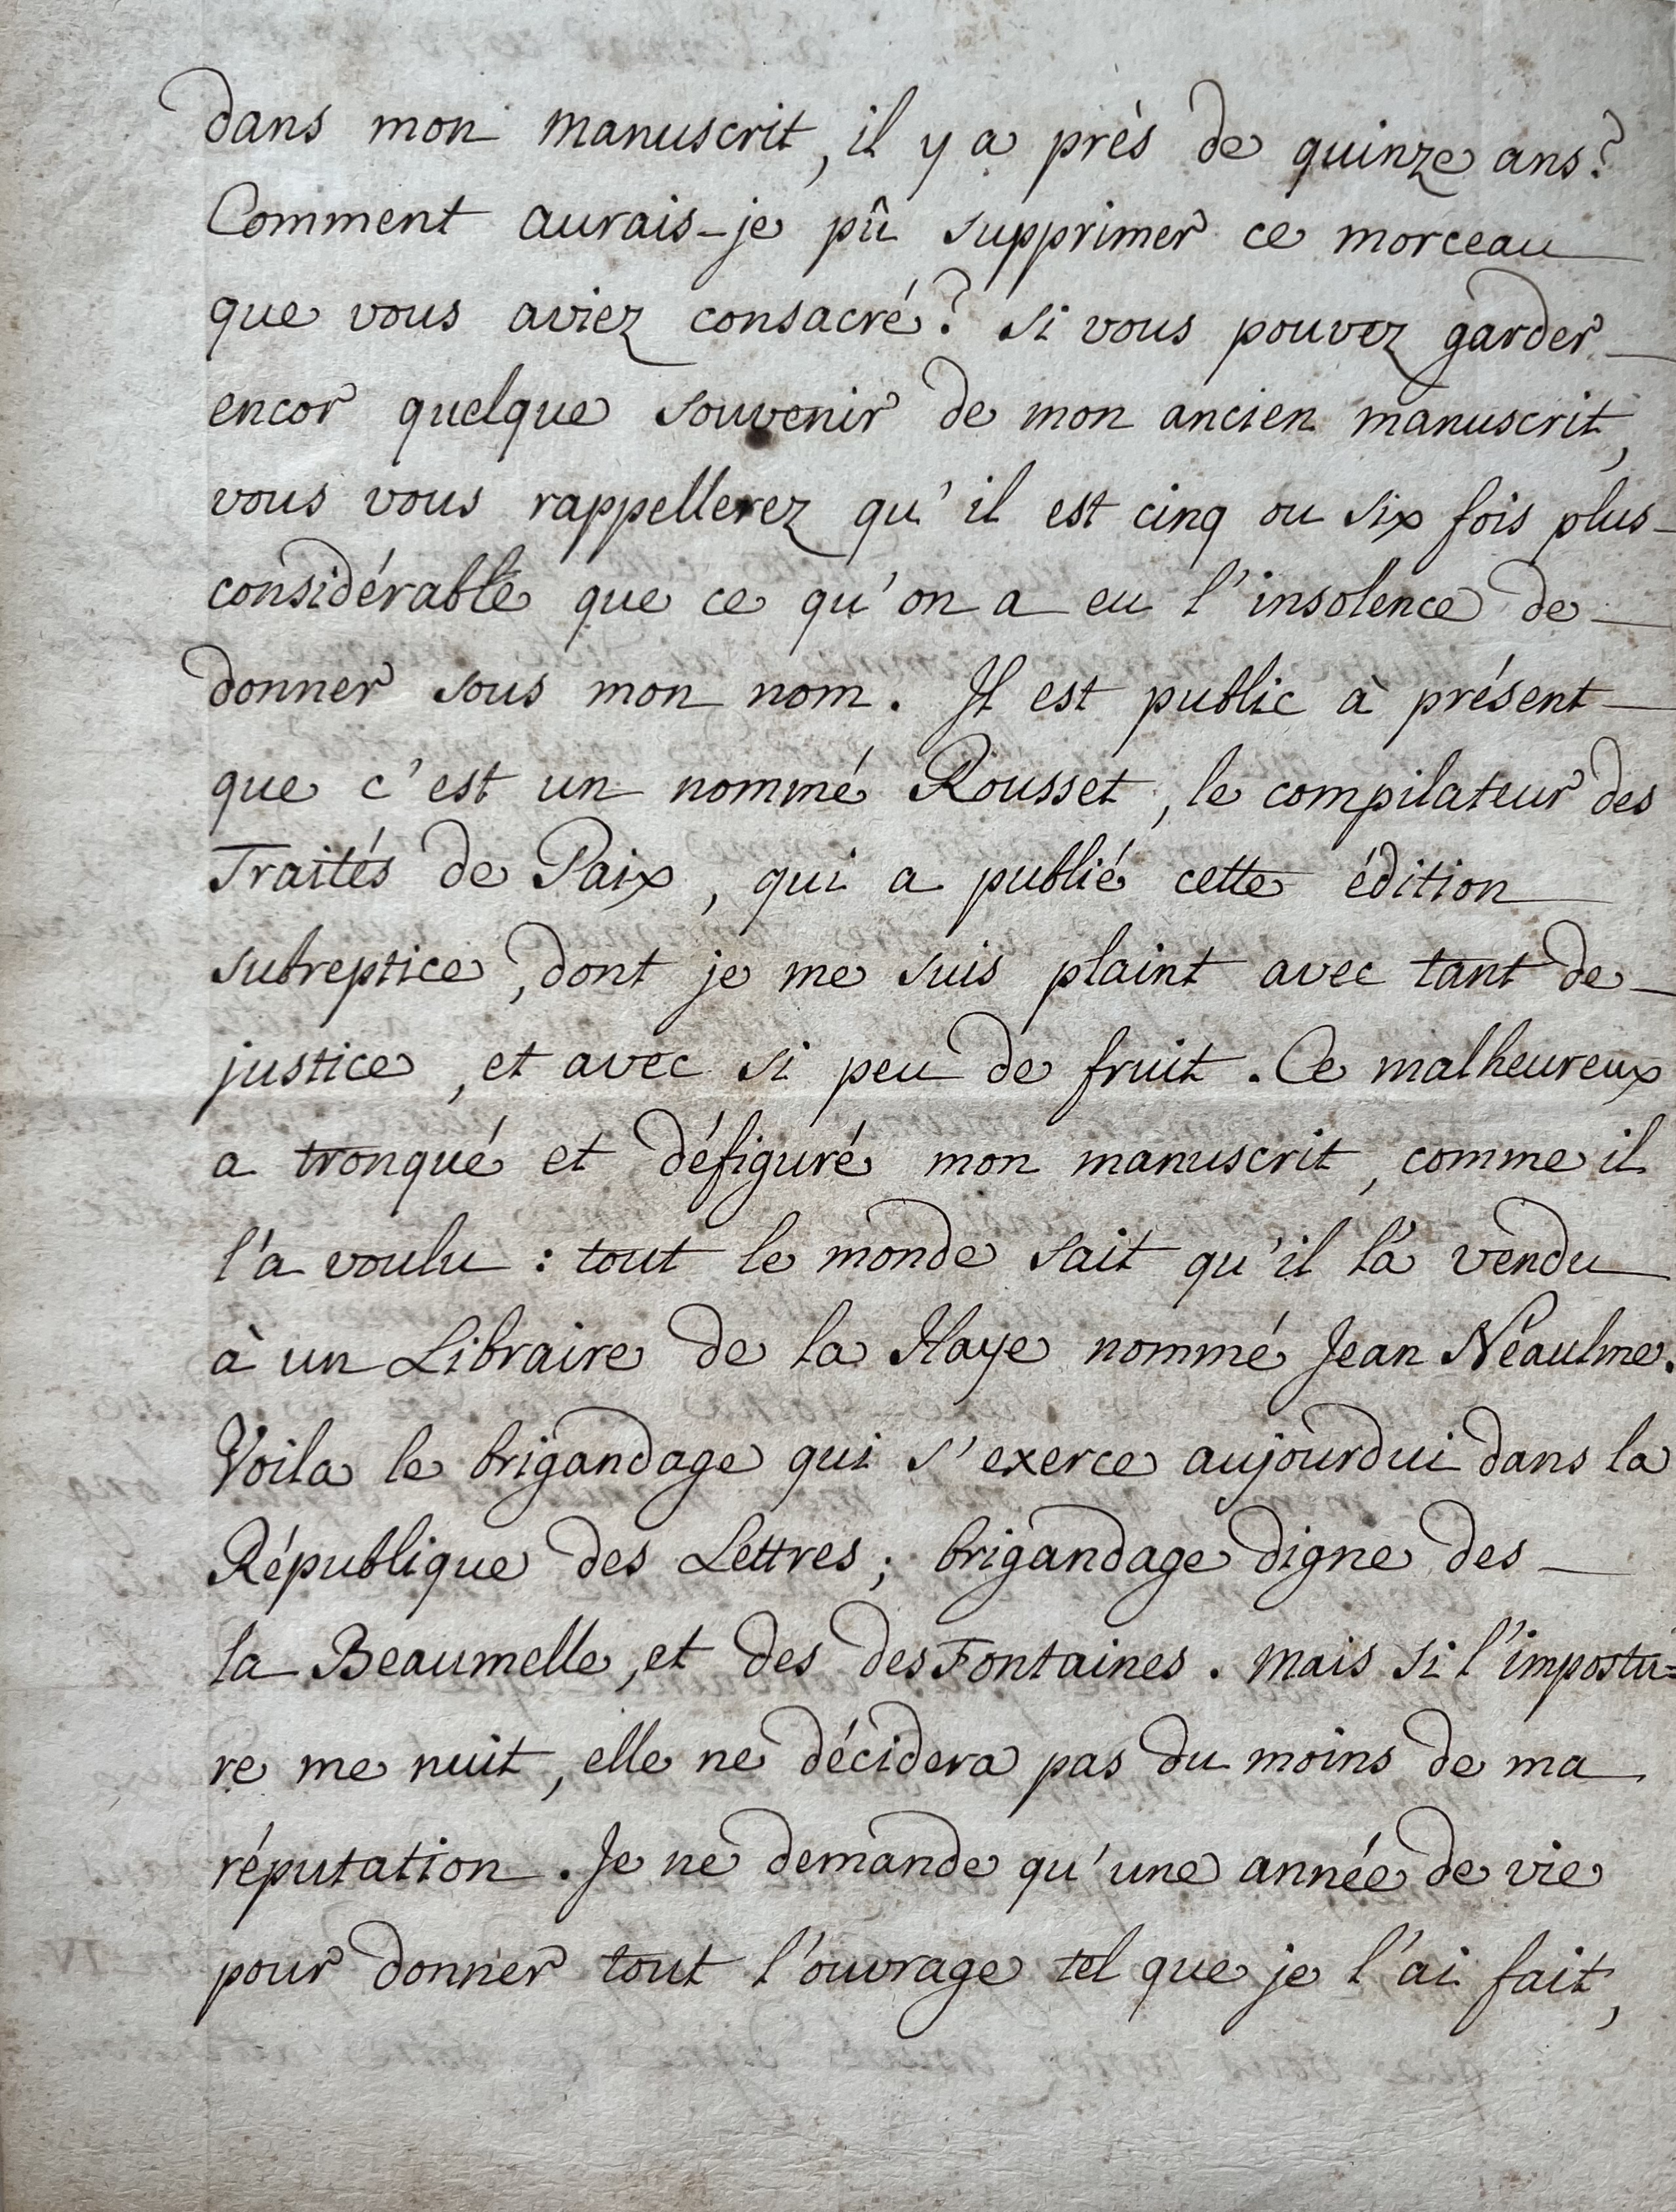 dans mon manuscrit, il y a près de quinze ans?
Comment aurais-je pû supprimer ce morceau
que vous aviez consacré? si vous pouvez garder
encor quelque souvenir de mon ancien manuscrit,
vous vous rappellerez qu'il est cinq ou six fois plus
considérable que ce qu'on a eu l'insolence de
donner sous mon nom. Il est public à présent
que c'est un nommé Rousset, le compilateur des
Traités de Paix, qui a publié cette édition
subreptice, dont je me suis plaint avec tant de
justice, et avec si peu de fruit. Ce malheureux
a tronqué et défiguré mon manuscrit, comme il
l'a voulu : tout le monde sait qu'il l'a vendu
à un Libraire de la Haye nommé Jean Néaulme.
Voila le brigandage qui s'exerce aujourdui dans la
République des Lettres; brigandage digne des
la Beaumelle, et des desFontaines. mais si l'impostu=
re me nuit, elle ne décidera pas du moins de ma
réputation. Je ne demande qu'une année de vie
pour donner tout l'ouvrage tel que je l'ai fait,